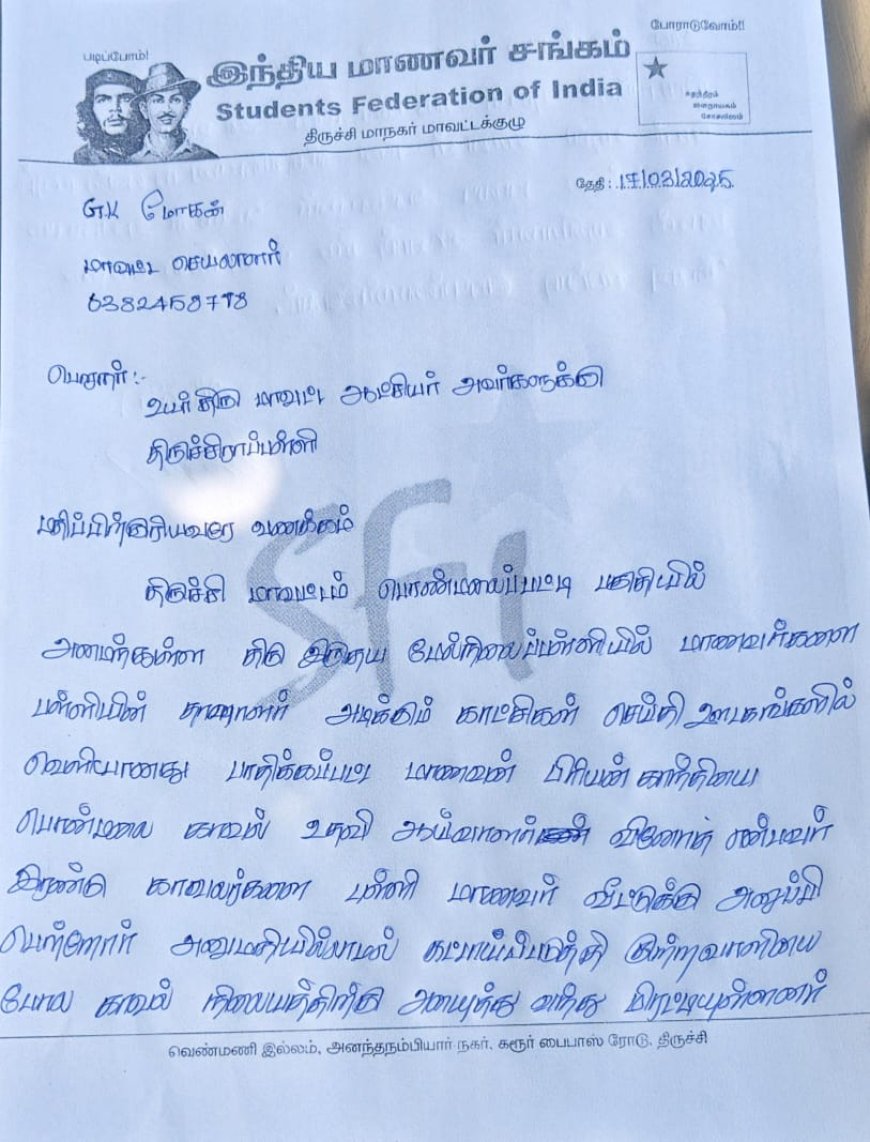 படிப்போம்!
போராடுவோம்!!
இந்திய மாணவர் சங்கம்
Students Federation of India
திருச்சி மாநகர் மாவட்டக்குழு
சுதந்திரம்
ஜனநாயகம்
சோசலிசம்
தேதி : 17/03/2025
G.K மோகன்
மாவட்ட செயலாளர்
பெறுநர் :-
உயர்திரு மாவட்ட ஆட்சியர் அவர்களுக்கு
திருச்சிராப்பள்ளி
மதிப்பிற்குரியவரே வணக்கம்
திருச்சி மாவட்டம் பொன்மலைப்பட்டி பகுதியில்
அமைந்துள்ள திரு இருதய மேல்நிலைப்பள்ளியில் மாணவர்களை
பள்ளியின் தாளாளர் அடிக்கும் காட்சிகள் செய்தி ஊடகங்களில்
வெளியானது பாதிக்கப்பட்ட மாணவன் பிரியன் காந்தியை
பொன்மலை காவல் உதவி ஆய்வாளர் வினோத் என்பவர்
இரண்டு காவலர்களை பள்ளி மாணவர் வீட்டுக்கு அனுப்பி
பெற்றோர் அனுமதியில்லாமல் கட்டாயப்படுத்தி குற்றவாளியை
போல காவல் நிலையத்திற்கு அழைத்து வந்து மிரட்டியுள்ளனர்
வெண்மணி இல்லம், அனந்தநம்பியார் நகர், கரூர் பைபாஸ் ரோடு, திருச்சி
SFI